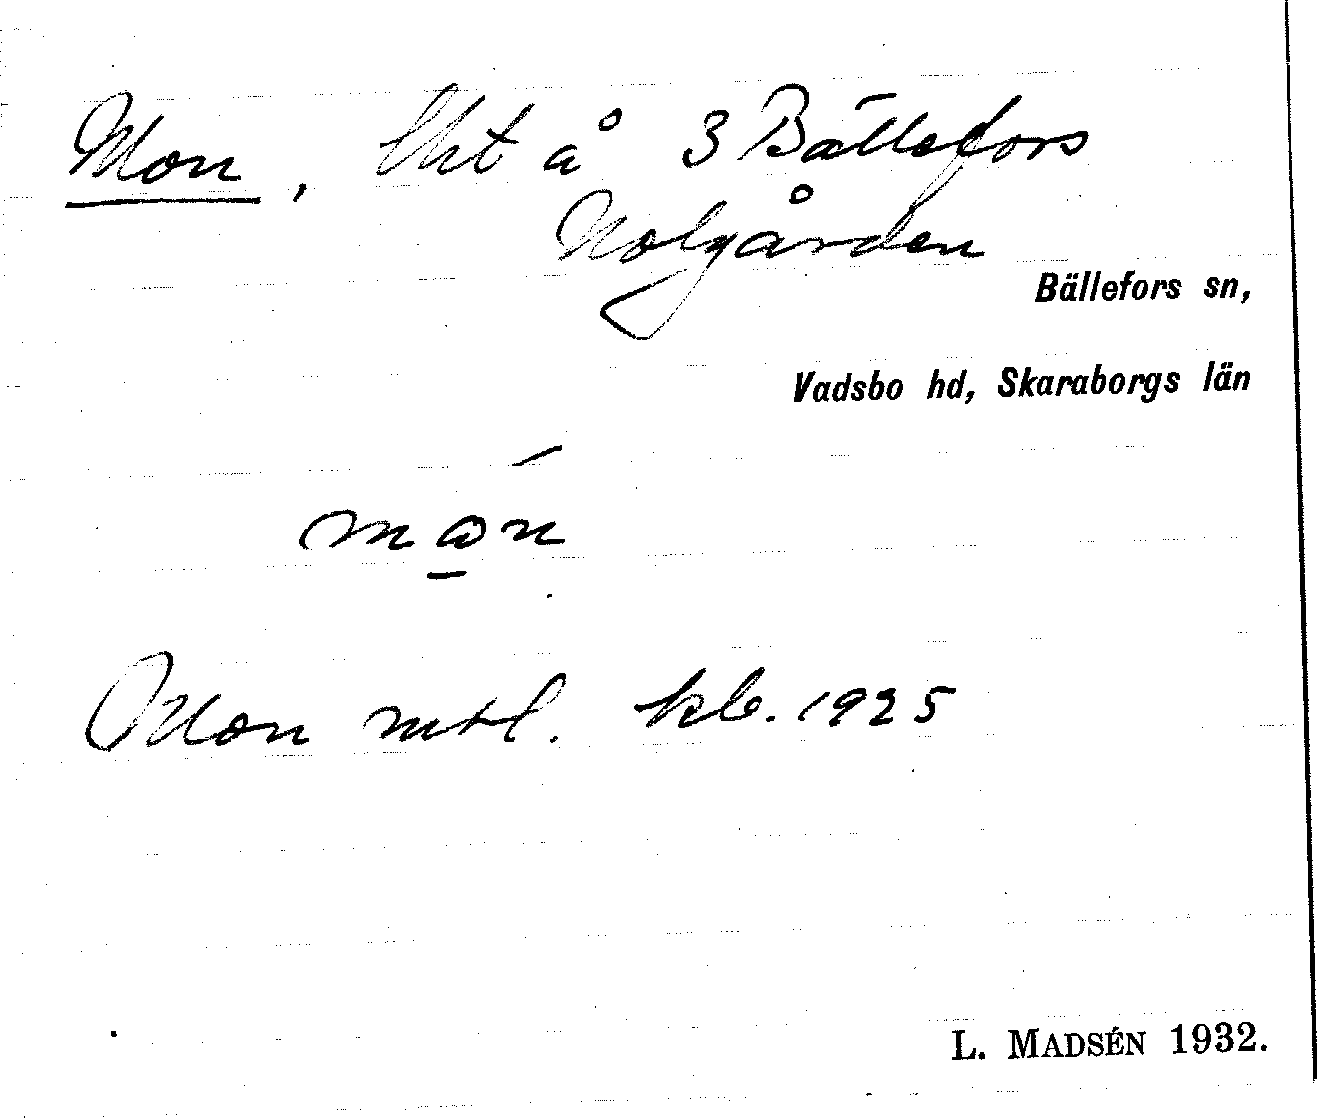 Mon, lht å 3 Bällefors
Nolgården
Bällefors sn,
Vadsbo hd, Skaraborgs län
Mon mtl. kb. 1925
L. MADSÉN 1932.